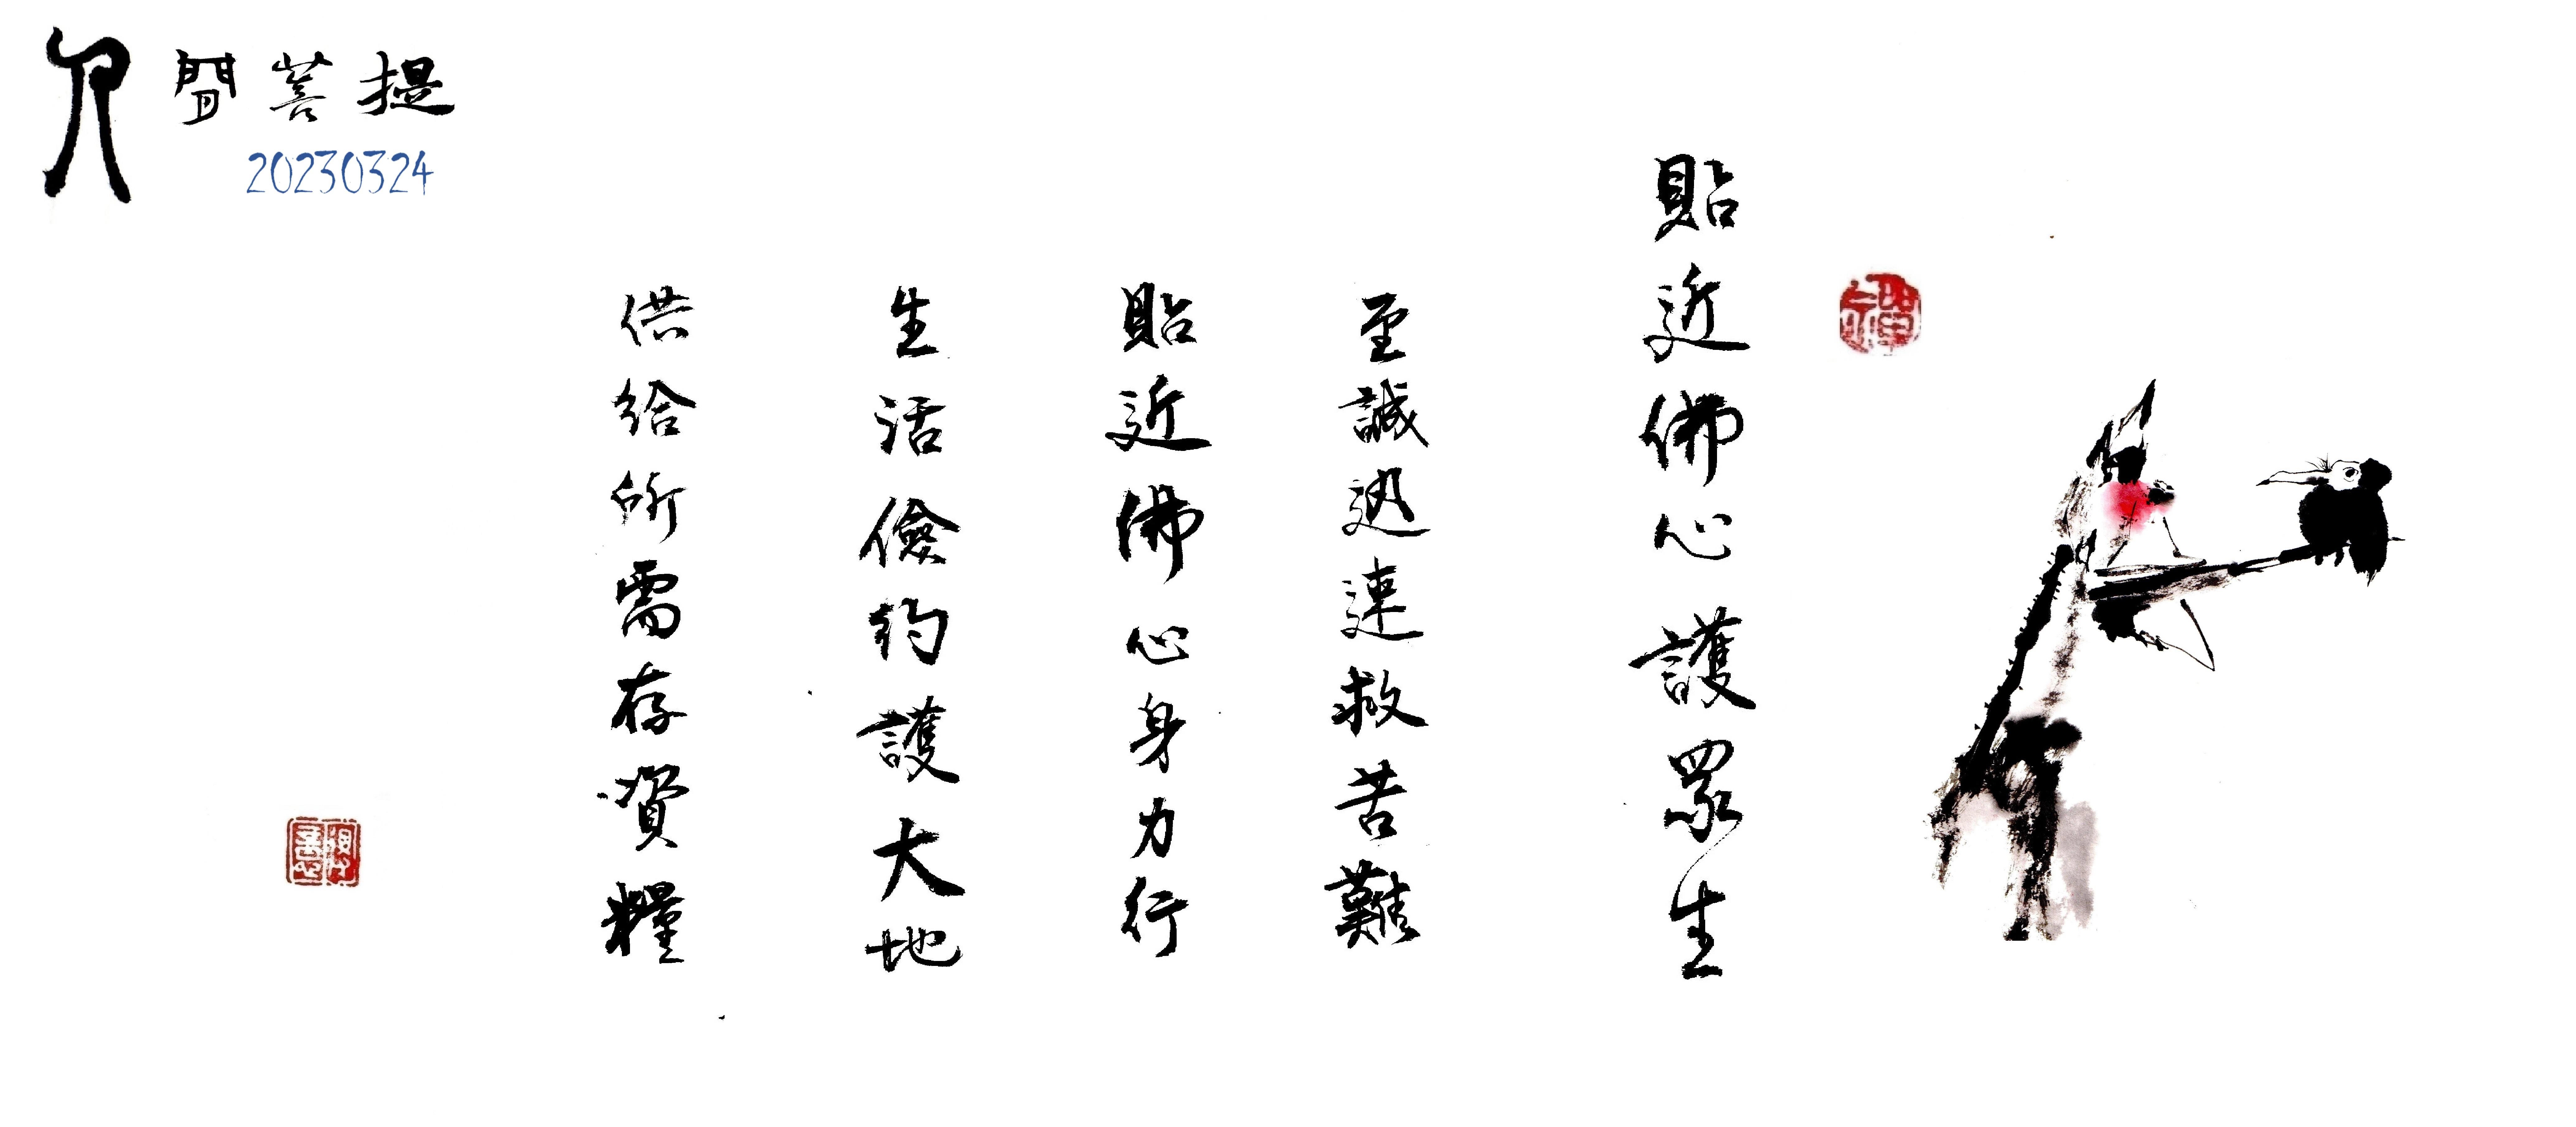 人間菩提
20230324
貼近佛心護眾生
至誠迅速救苦難
貼近佛心身力行
生活儉約護大地
供給所需存資糧
禪